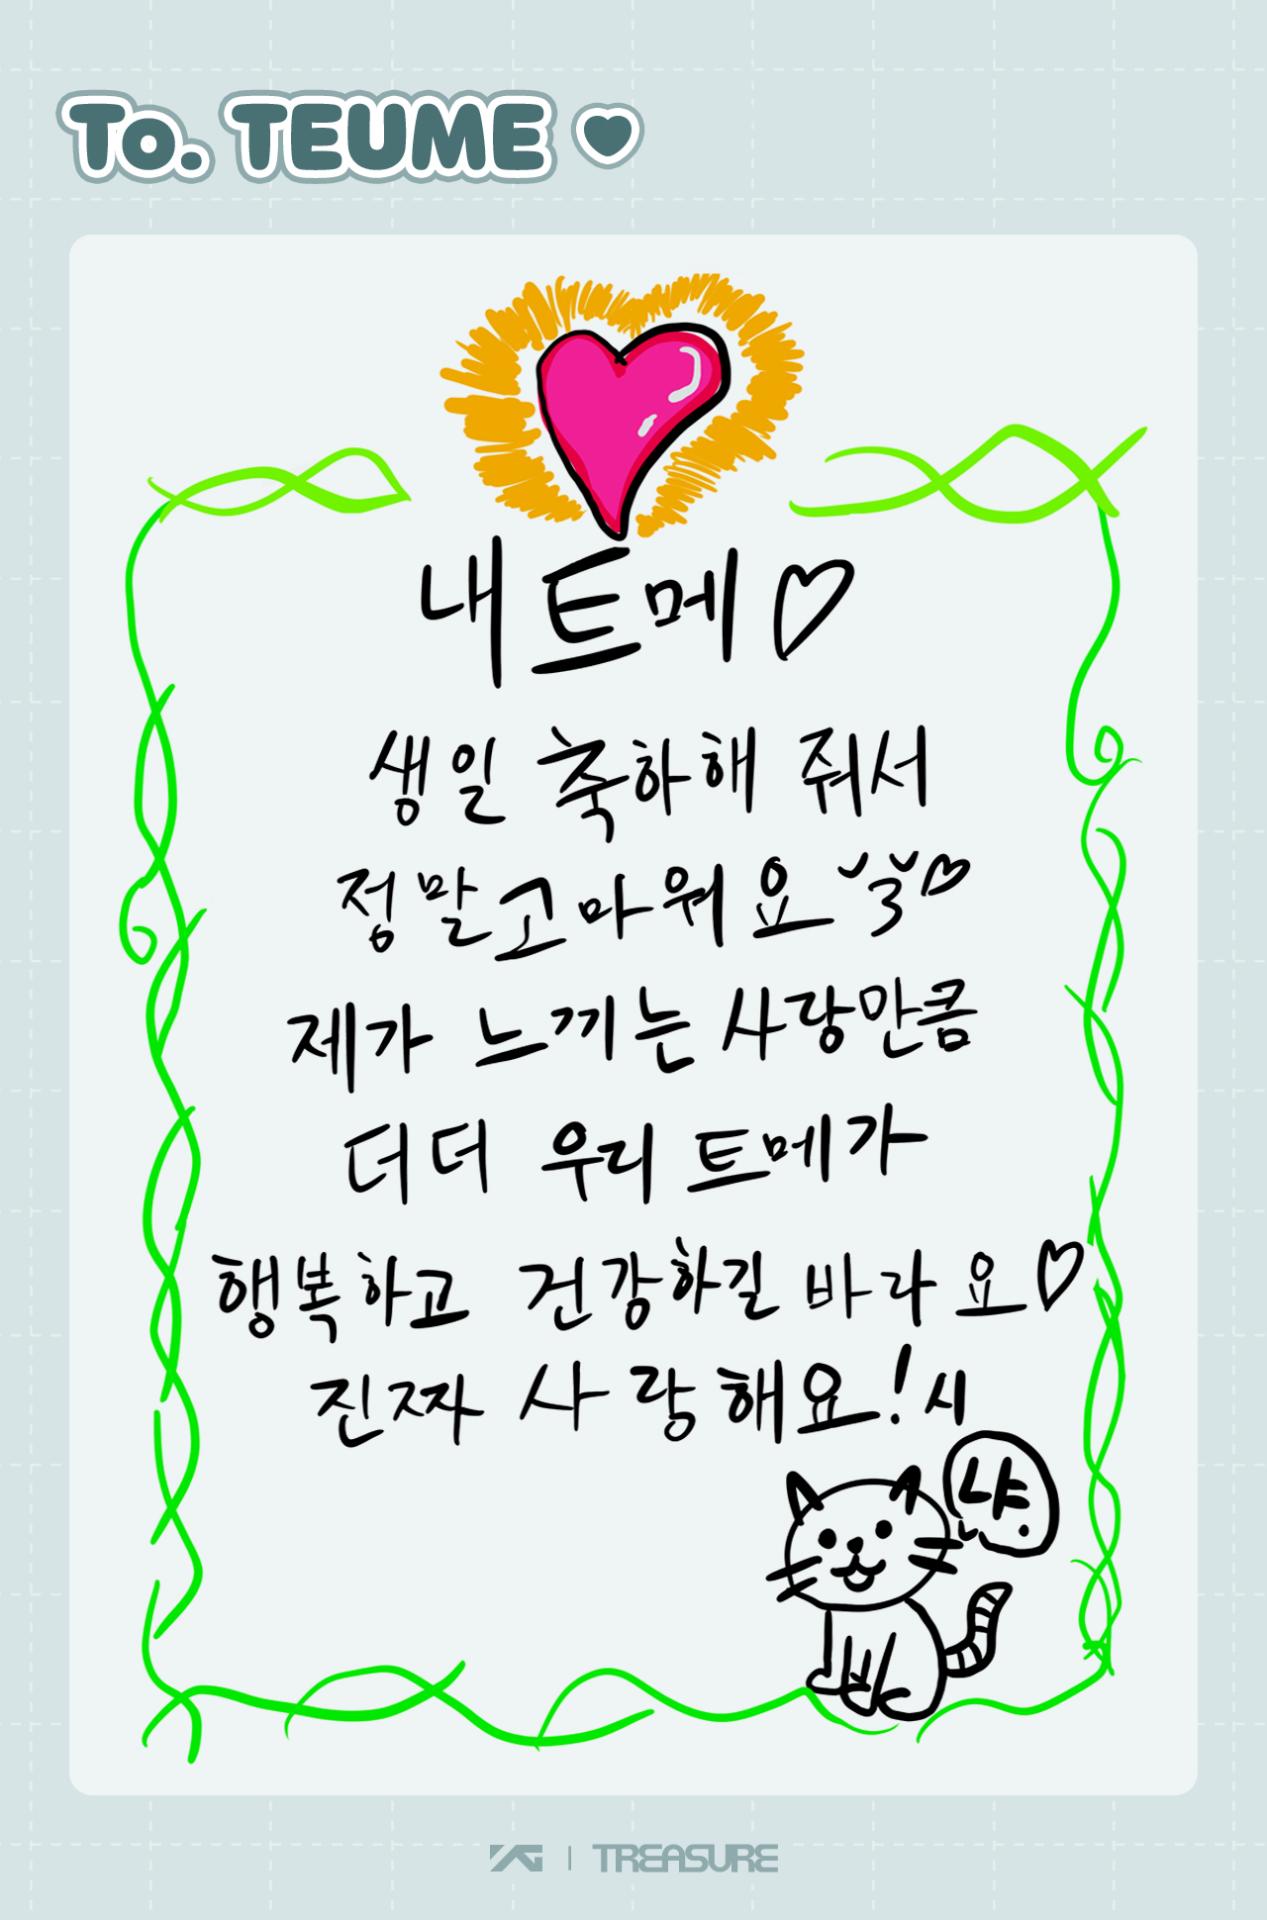 To. TEUME ♥
내 트메♡
생일 축하해 줘서
정말 고마워요 ˘3˘♡
제가 느끼는 사랑만큼
더더 우리 트메가
행복하고 건강하길 바라요♡
진짜 사랑해요! 시
냐.
YG | TREASURE